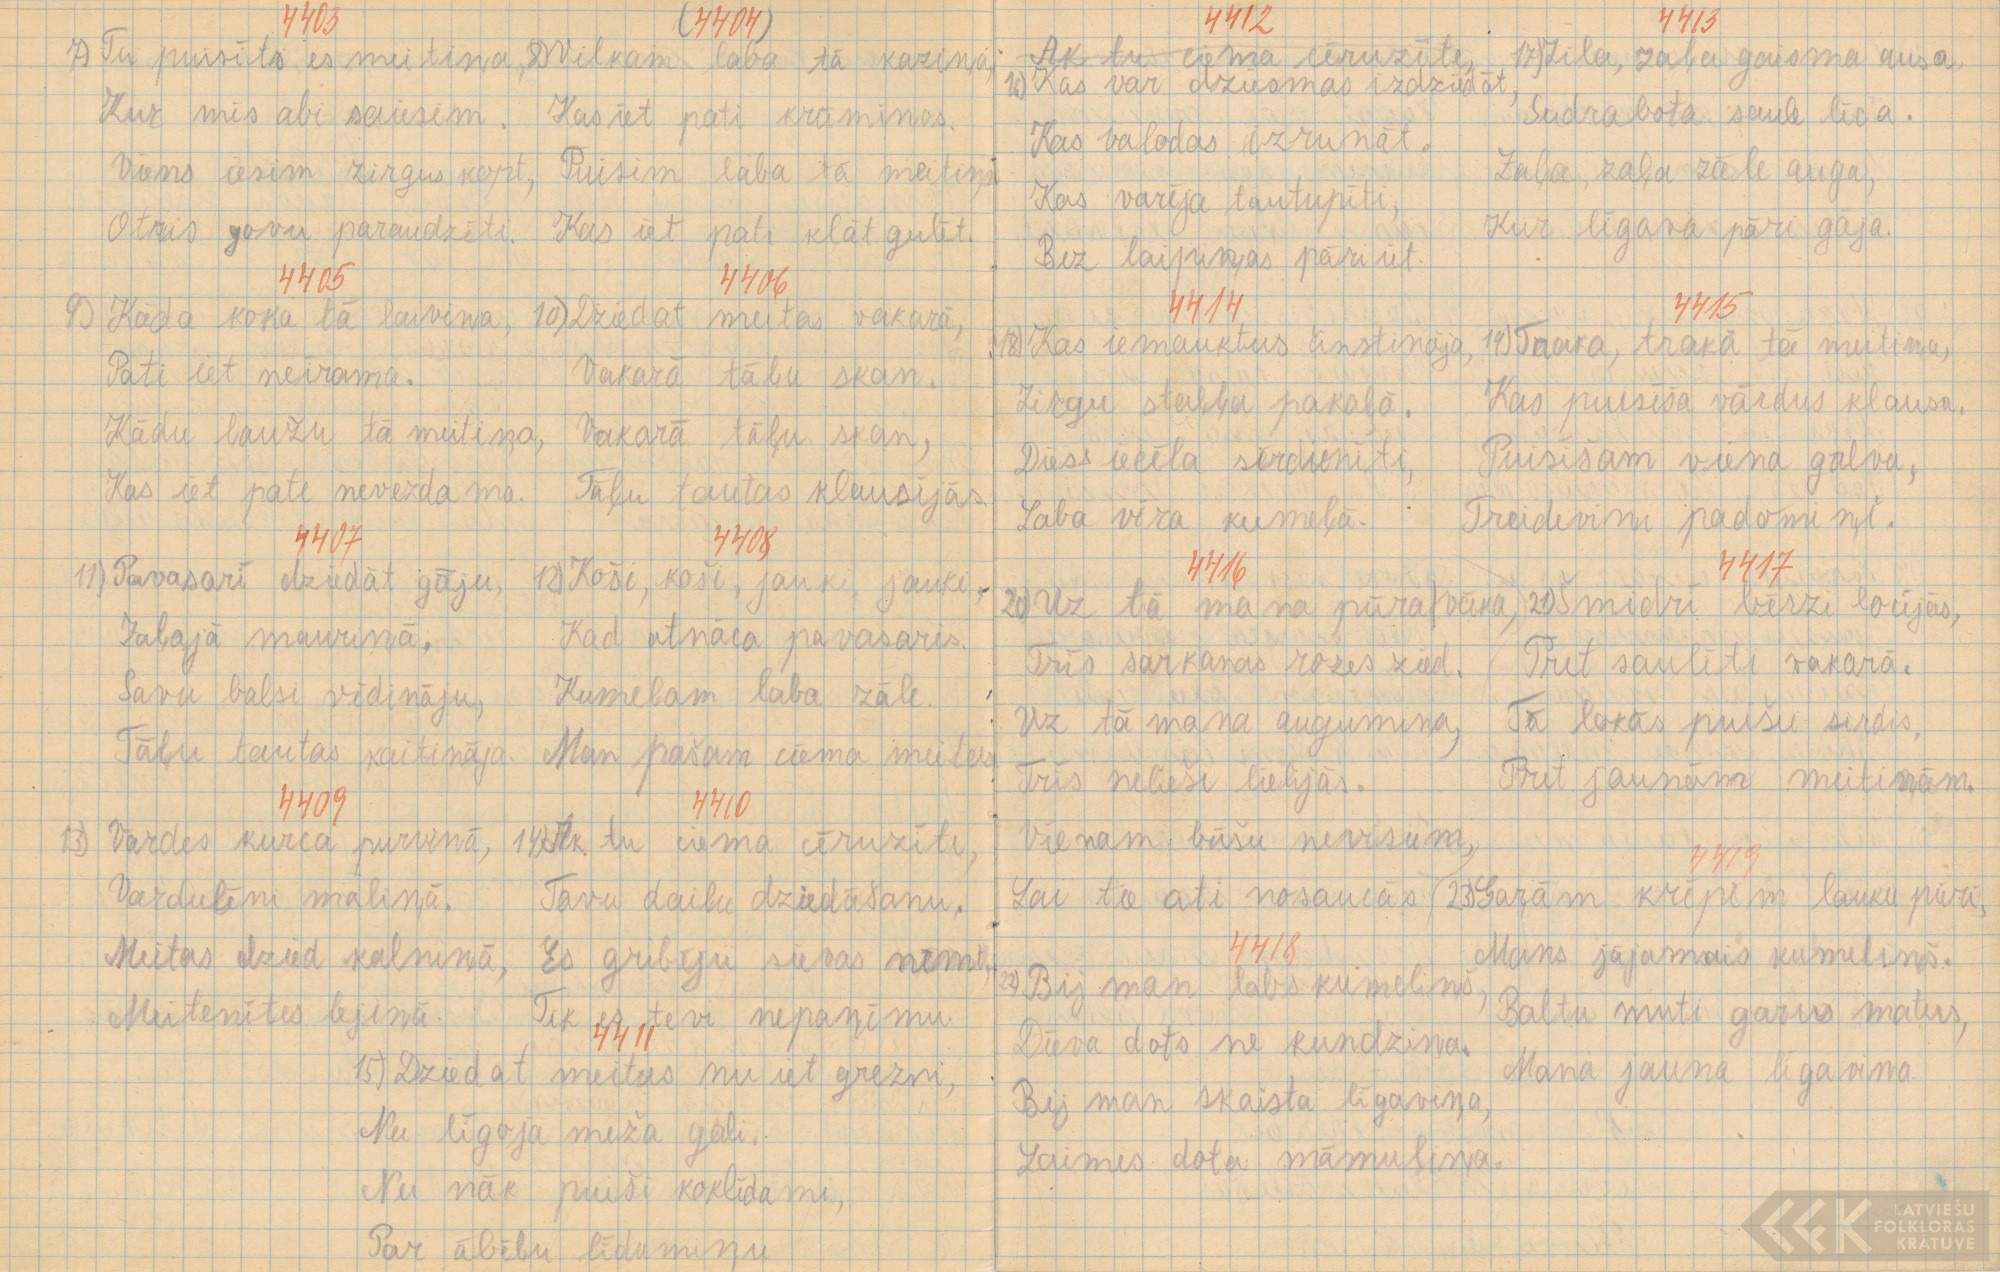 4403
7) Tu puisīts es meitiņa,
Kur mīs abi saiesim.
Viens iesim zirgus kopt,
Otris govu paraudzīti.
(4404)
8) Vilkam laba tā kaziņa,
Kas iet pati krūmiņos.
Puisim laba tā meitiņa
Kas iet pati klāt gulēt.
4405
9) Kāda koka tā laiviņa,
Pati iet neirama.
Kādu laužu tā meitiņa,
Kas iet pate nevezdama.
4406
10) Dziedat meitas vakarā,
Vakarā tāļu skan.
Vakarā tāļu skan,
Tāļu tautas klausījās.
4407
11) Pavasarī dziedāt gāju,
Zaļajā mauriņā.
Savu balsi vēdināju,
Tāļu tautas kaitināja.
4408
12) Koši, koši, jauki, jauki,
Kad atnāca pavasaris.
Kumeļam laba zāle.
Man pašam ciema meitas
4409
13) Vardes kurca purviņā,
Vardulēni māliņā.
Meitas dzied kalniņā,
Meitenītes lejiņā.
4410
14) Ak tu ciema cēruzīte,
Tavu daiļu dziedāšanu.
Es gribēju sievas nemt,
Tik es tevi nepaņīmu.
4411
15) Dziedat meitas nu iet grezni,
Nu līgoja meža gali.
Nu nāk puiši koklīdami,
Par ābēļu līdumiņu
4412
Ak tu ciema cēruzīte,
16) Kas var dziesmas izdziedāt,
Kas valodas izrunāt.
Kas varīja tautupīti,
Bez laipiņas pāri iet.
4413
17) Zila, zaļa gaisma ausa,
Sudrabota saule lēca.
Zaļa, zaļa zāle auga,
Kur līgava pāri gāja.
4414
18) Kas iemauktus činstināja,
Zirgu staļļa pakaļā.
Diess iecēla sērdienīti,
Laba vīra kumeļā.
4415
19) Traka, trakā tā meitiņa,
Kas puisīša vārdus klausa.
Puisīšam viena galva,
Treideviņi padomiņi.
4416
20) Uz tā mana pūra vāka,
Trīs sarkanas rozes zied.
Uz tā mana augumiņa,
Trīs nelieši lielījās.
Vienam būšu nevisiem,
Lai tie ati nosaucās
4417
21) Šmidri bērzi locījās,
Pret saulīti vakarā.
Tā lokās puišu sirdis,
Pret jaunām meitiņām.
4418
22) Bij man labs kumeliņš,
Dieva dots ne kundziņa.
Bij man skaista līgaviņa,
Laimes dota māmuliņa.
4419
23) Garām krēpēm lauku pāri,
Mans jājamais kumeliņš.
Baltu muti garus matus,
Mana jauna līgaviņa
LATVIEŠU
FOLKLORAS
KRĀTUVE